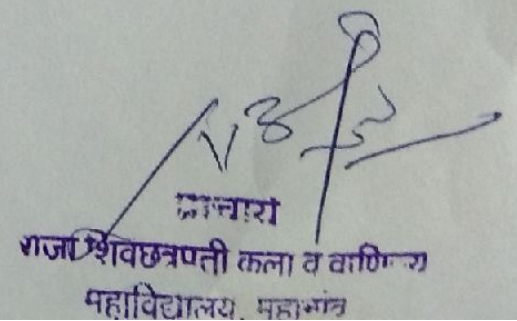 प्राचार्य
राजा शिवछत्रपती कला व वाणिज्य
महाविद्यालय, महागांव